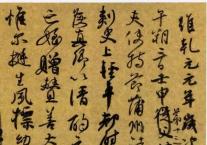 維乾元元年歲
午朔三日壬申第十三
夫使持節蒲州諸
刺史上輕車都尉
侯真卿以清酌
亡姪贈贊善大
惟爾挺生夙標幼